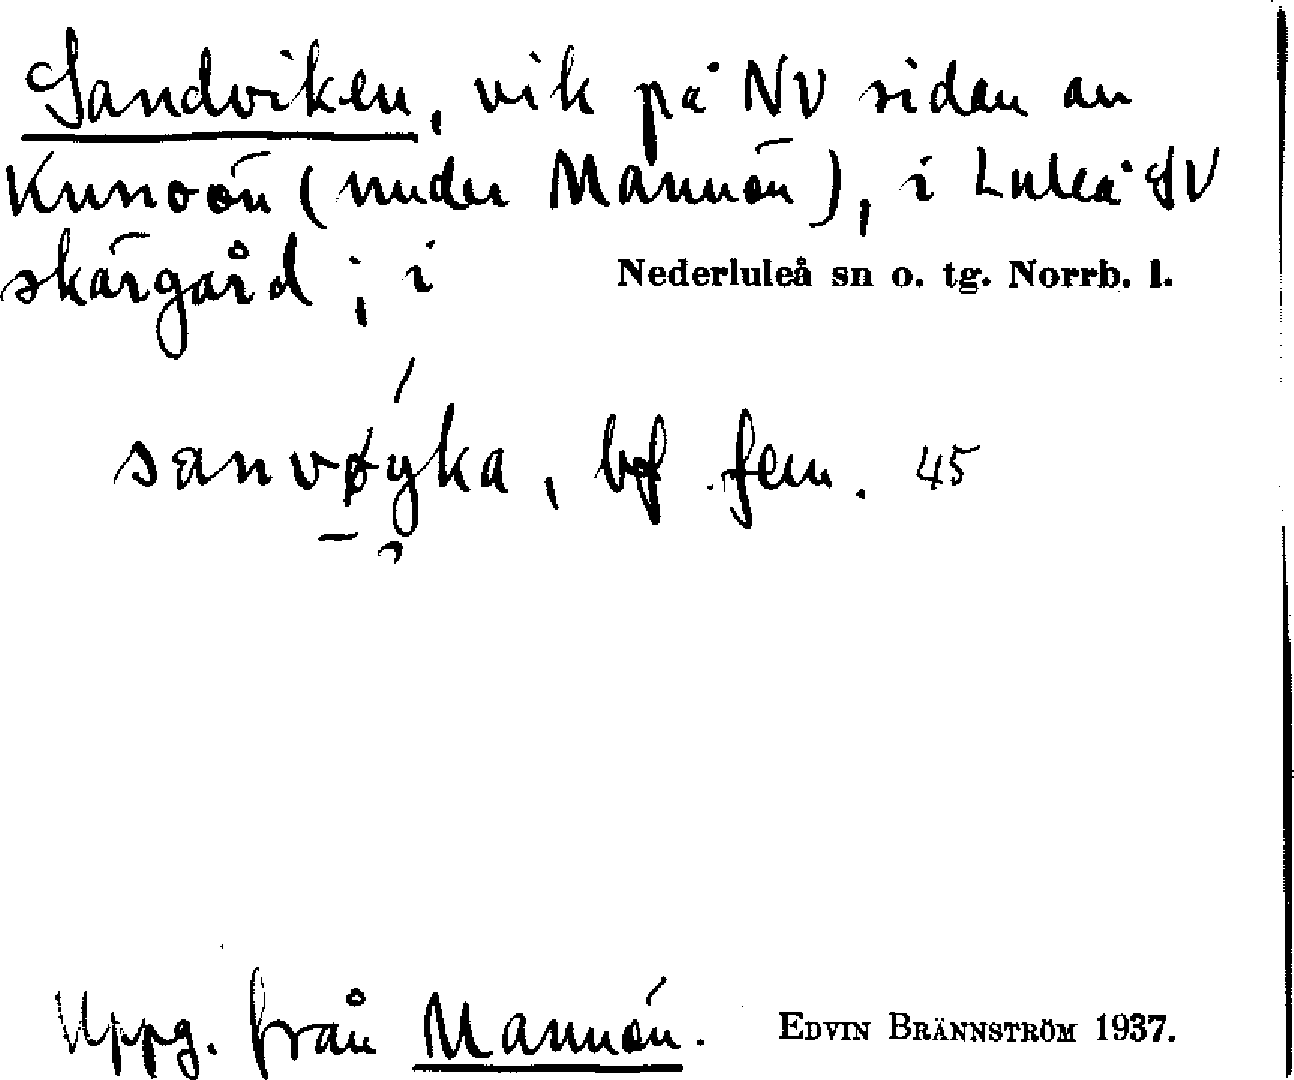 Sandviken, vik på NV sidan av
Kunoön (under Mannön), i Luleå SV
skärgård; i Nederluleå sn o. tg. Norrb. l.
sanvøyka, bf fem. 45
Uppg. från Mannön. EDVIN BRÄNNSTRÖM 1937.